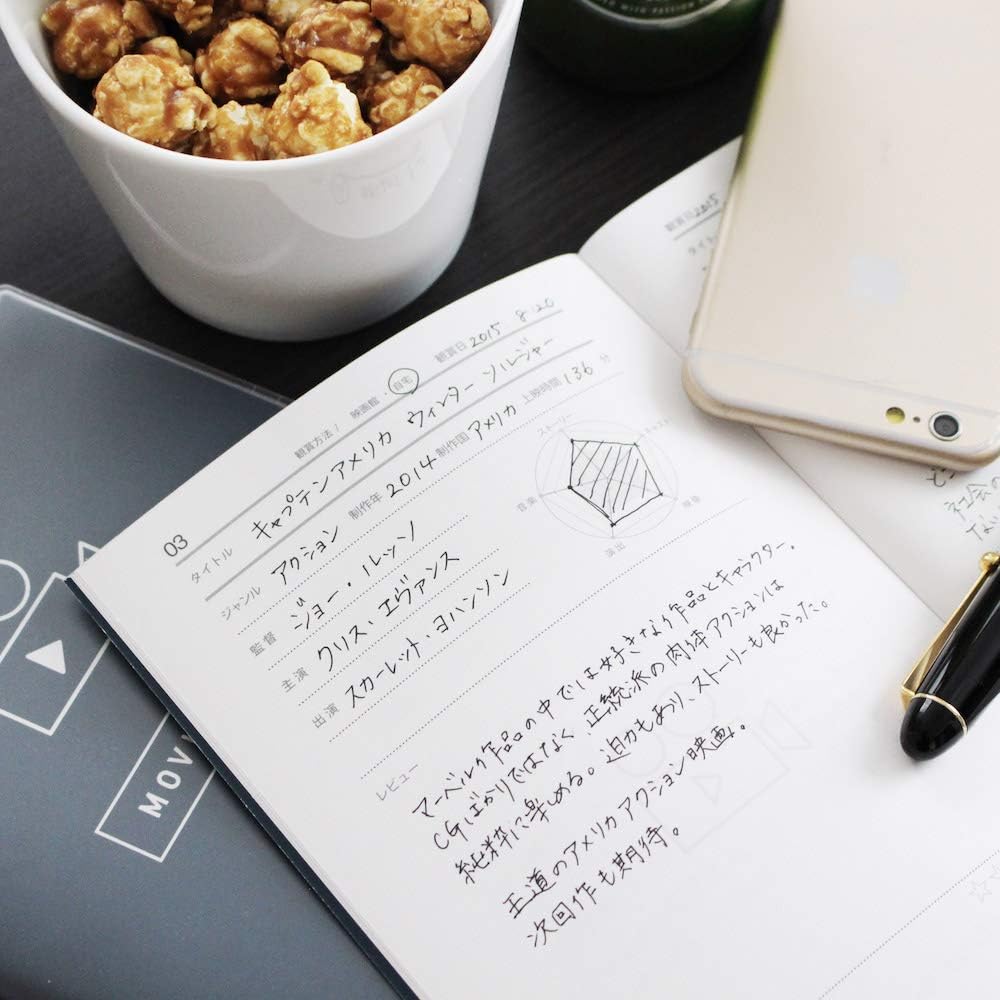 WITH PASSION
観賞方法 / 映画館・自宅 観賞日 2015 8.20
03
タイトル キャプテンアメリカ ウィンター ソルジャー
ジャンル アクション 制作年 2014 制作国 アメリカ 上映時間 136 分
監督 ジョー・ルッソ
主演 クリス・エヴァンス
出演 スカーレット・ヨハンソン
ストーリー
キャスト
音楽
映像
演出
レビュー
マーベル作品の中では好きな作品とキャラクター。
CGばかりではなく、正統派の肉体アクションは
純粋に楽しめる。迫力もあり、ストーリーも良かった。
王道のアメリカ アクション映画。
次回作も期待。
観賞日 2015
タイト
社会の
ない
MOV